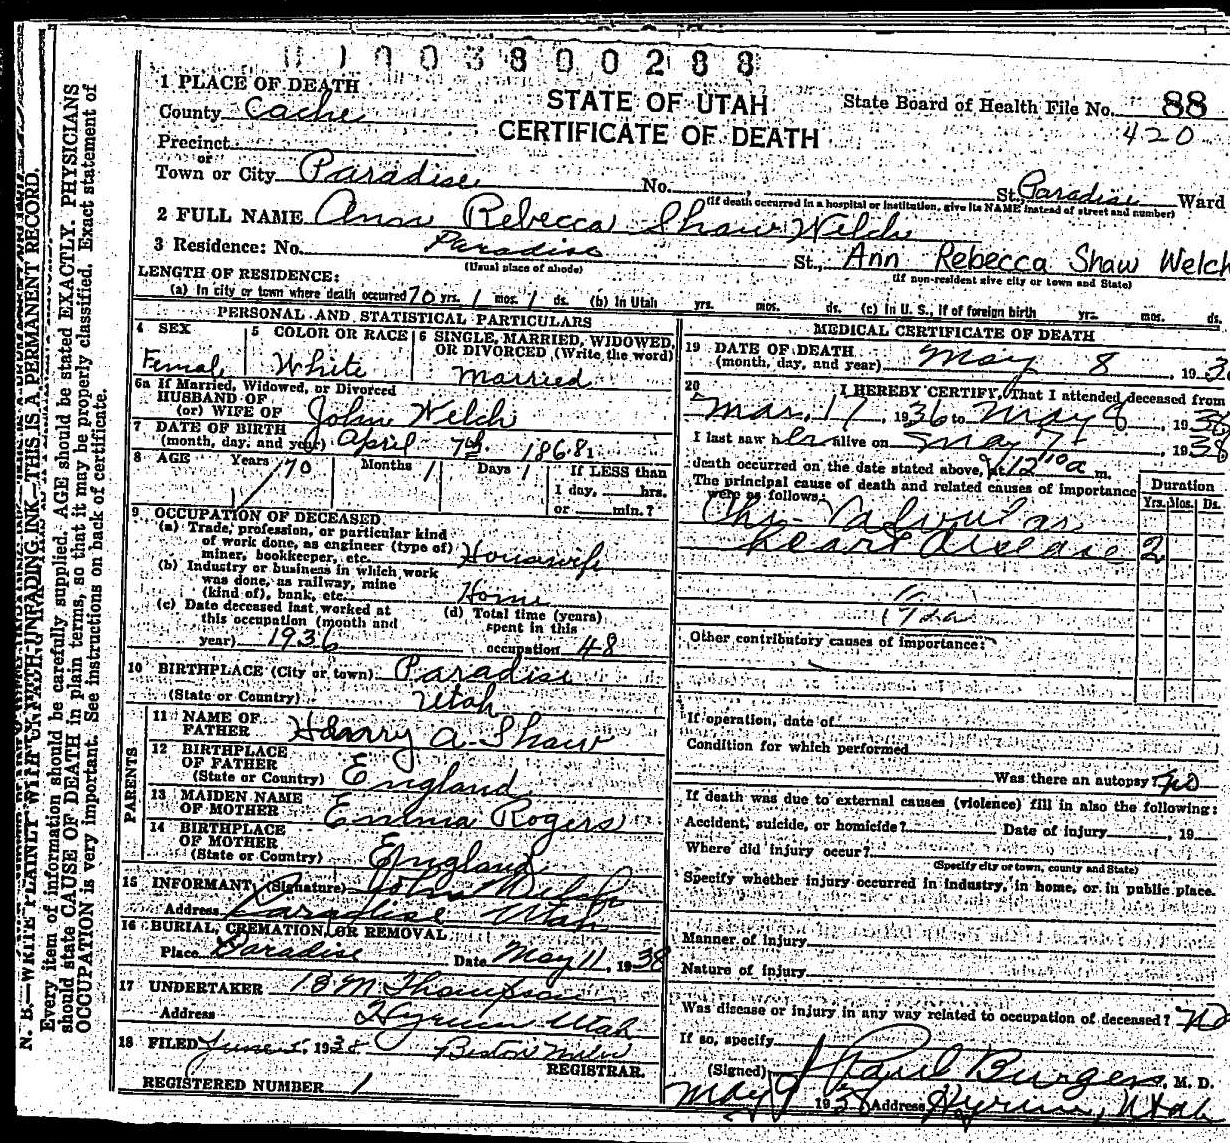 1 1 0 0 3 8 0 0 2 8 8
STATE OF UTAH
CERTIFICATE OF DEATH
State Board of Health File No. 88
420
1 PLACE OF DEATH
County Cache
Precinct
or
Town or City Paradise No. St., Paradise Ward
(If death occurred in a hospital or institution, give its NAME instead of street and number)
2 FULL NAME Ann Rebecca Shaw Welch
3 Residence: No. Paradise St., Ann Rebecca Shaw Welch
(Usual place of abode) (If non-resident give city or town and State)
LENGTH OF RESIDENCE:
(a) In city or town where death occurred 70 yrs. 1 mos. 1 ds. (b) In Utah yrs. mos. ds. (c) In U. S., if of foreign birth yrs. mos. ds.
PERSONAL AND STATISTICAL PARTICULARS
4 SEX
Female
5 COLOR OR RACE
White
6 SINGLE, MARRIED, WIDOWED,
OR DIVORCED (Write the word)
Married
6a If Married, Widowed, or Divorced
HUSBAND OF
(or) WIFE OF John Welch
7 DATE OF BIRTH
(month, day, and year) April 7th 1868
8 AGE Years 70 Months 1 Days 1 If LESS than
1 day, hrs.
or min.?
9 OCCUPATION OF DECEASED
(a) Trade, profession, or particular kind
of work done, as engineer (type of)
miner, bookkeeper, etc. Housewife
(b) Industry or business in which work
was done, as railway, mine
(kind of), bank, etc. Home
(c) Date deceased last worked at
this occupation (month and
year) 1936
(d) Total time (years)
spent in this
occupation 48
10 BIRTHPLACE (City or town) Paradise
(State or Country) Utah
PARENTS
11 NAME OF
FATHER Henry A. Shaw
12 BIRTHPLACE
OF FATHER
(State or Country) England
13 MAIDEN NAME
OF MOTHER Emma Rogers
14 BIRTHPLACE
OF MOTHER
(State or Country) England
15 INFORMANT (Signature) John Welch
Address Paradise Utah
16 BURIAL, CREMATION, OR REMOVAL
Place Paradise Date May 11, 1938
17 UNDERTAKER B M Thompson
Address Hyrum Utah
18 FILED June 5, 1938
REGISTRAR.
REGISTERED NUMBER 1
MEDICAL CERTIFICATE OF DEATH
19 DATE OF DEATH
(month, day, and year) May 8, 193
20 I HEREBY CERTIFY, That I attended deceased from
Mar. 17, 1936 to May 8, 1938
I last saw her alive on May 7, 1938
death occurred on the date stated above, at 12 10 a m.
The principal cause of death and related causes of importance
were as follows:
Duration
Yrs. Mos. Ds.
Chr Valvular
heart disease 2
Other contributory causes of importance:
If operation, date of
Condition for which performed
Was there an autopsy? No
If death was due to external causes (violence) fill in also the following:
Accident, suicide, or homicide? Date of injury , 19
Where did injury occur?
(Specify city or town, county and State)
Specify whether injury occurred in industry, in home, or in public place.
Manner of injury
Nature of injury
Was disease or injury in any way related to occupation of deceased? No
If so, specify
(Signed) J Paul Burgess, M. D.
May 9 1938 Address Hyrum, Utah
N. B.—WRITE PLAINLY WITH UNFADING INK—THIS IS A PERMANENT RECORD.
Every item of information should be carefully supplied. AGE should be stated EXACTLY. PHYSICIANS
should state CAUSE OF DEATH in plain terms, so that it may be properly classified. Exact statement of
OCCUPATION is very important. See instructions on back of certificate.